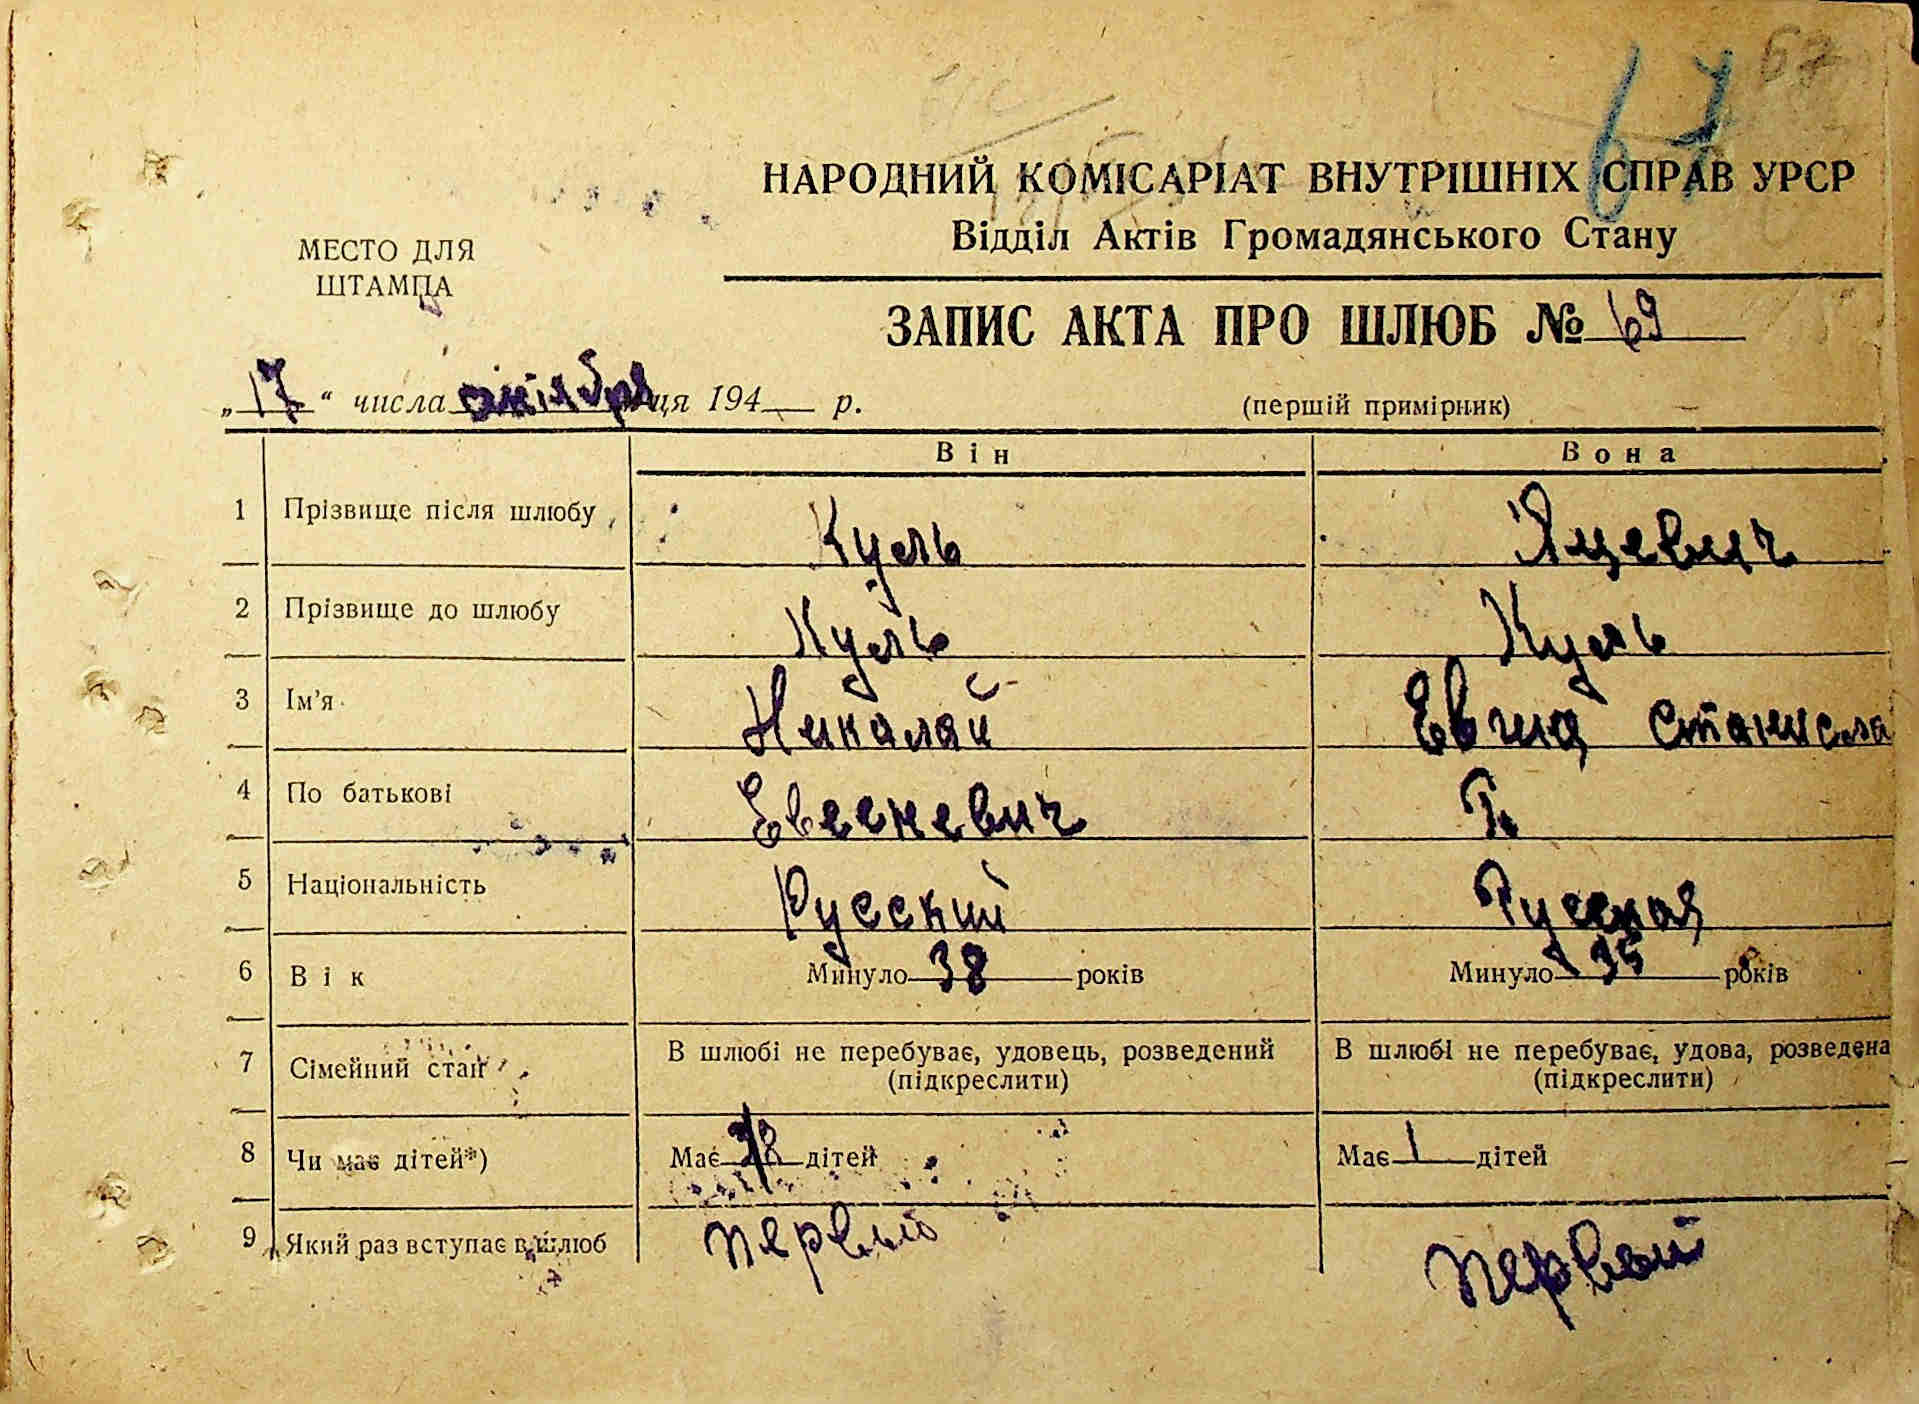 67
67
НАРОДНИЙ КОМІСАРІАТ ВНУТРІШНІХ СПРАВ УРСР
Відділ Актів Громадянського Стану
МЕСТО ДЛЯ
ШТАМПА
ЗАПИС АКТА ПРО ШЛЮБ № 69
„17“ числа октября ця 194 р.
(першій примірник)
Він Вона
1 Прізвище після шлюбу Куль Яцевич
2 Прізвище до шлюбу Куль Куль
3 Ім'я Николай Евгия Станисла
4 По батькові Евсеневич Г.
5 Національність Русский Русская
6 Вік Минуло 38 років Минуло 35 років
7 Сімейний стан В шлюбі не перебуває, удовець, розведений (підкреслити) В шлюбі не перебуває, удова, розведена (підкреслити)
8 Чи має дітей*) Має дітей Має 1 дітей
9 Який раз вступає в шлюб первый первый